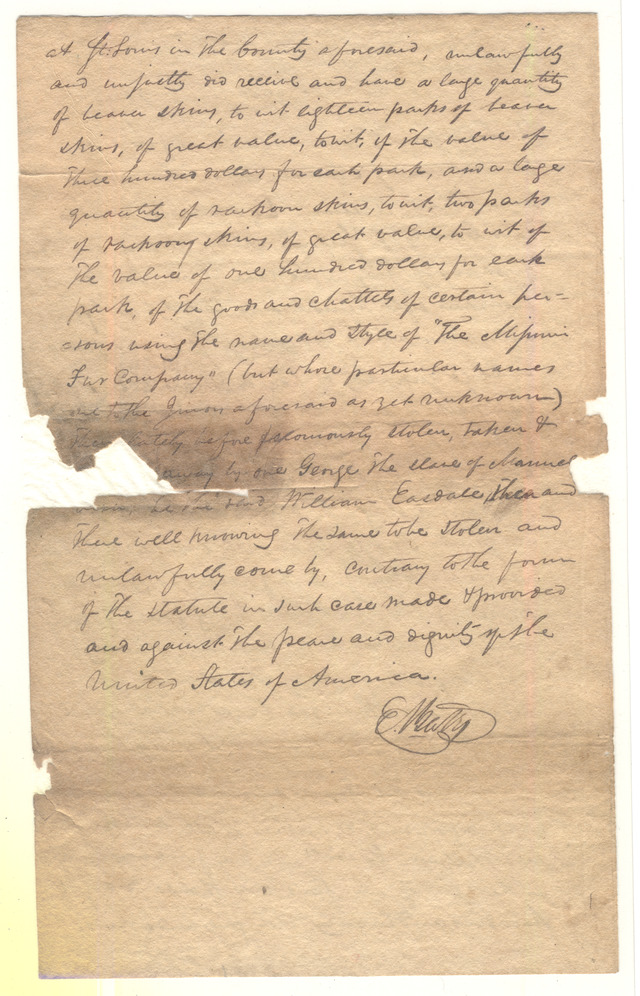 at St. Louis in the County aforesaid, unlawfully
and unjustly did receive and have a large quantity
of beaver skins, to wit eighteen packs of beaver
skins, of great value, towit, of the value of
three hundred dollars for each pack, and a large
quantity of rackoon skins, towit, two packs
of rackoon skins, of great value, to wit of
the value of one hundred dollars for each
pack, of the goods and chattels of certain per=
=sons using the name and style of "The Missouri
Fur Company" (but whose particular names
are to the Jurors aforesaid as yet unknown)
then lately before feloniously stolen, taken &
away by one George the slave of Manuel
he the said William Easdale, then and
there well knowing the same to be stolen and
unlawfully come by, contrary to the form
of the statute in such case made & provided
and against the peace and dignity of the
United States of America.
E. Hempstead